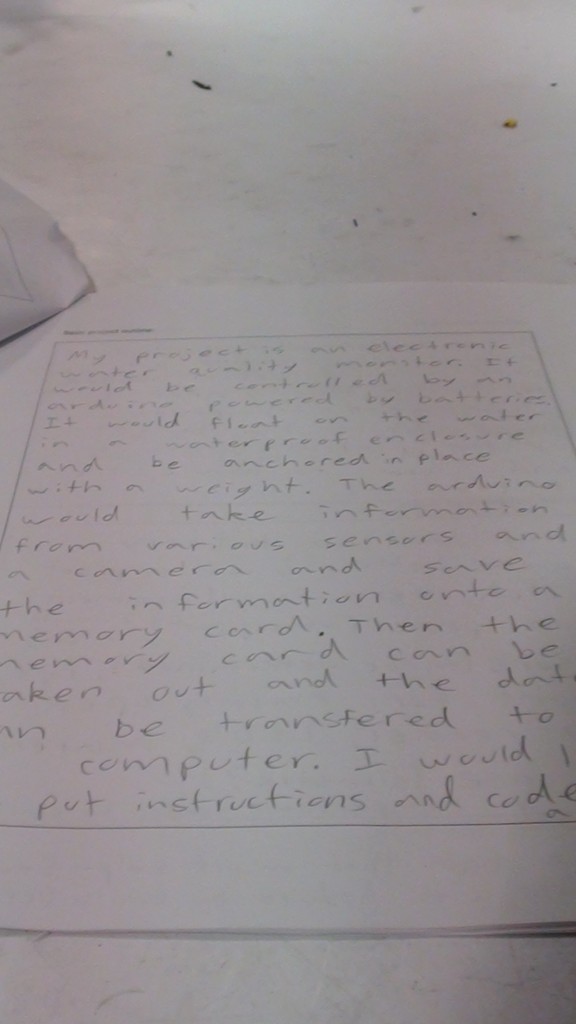 Basic project outline
My project is an electronic
water quality monitor. It
would be controlled by an
arduino powered by batteries.
It would float on the water
in a waterproof enclosure
and be anchored in place
with a weight. The arduino
would take information
from various sensors and
a camera and save
the information onto a
memory card. Then the
emory card can be
aken out and the dat
an be transfered to
computer. I would l
put instructions and code
a